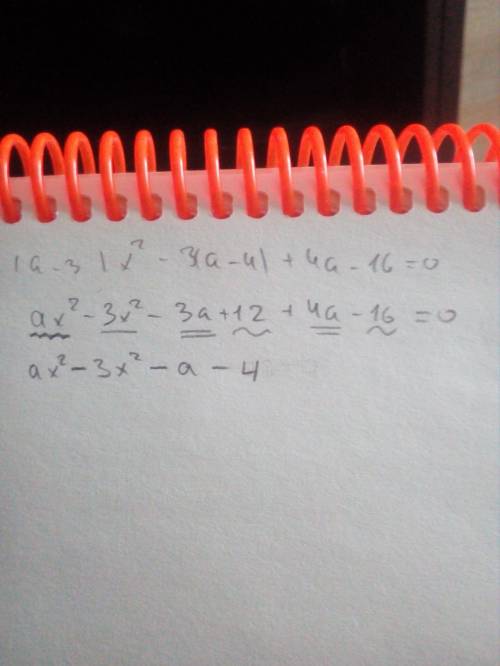 (a-3)x² - 3(a-4) + 4a - 16 = 0
ax² - 3x² - 3a + 12 + 4a - 16 = 0
ax² - 3x² - a - 4